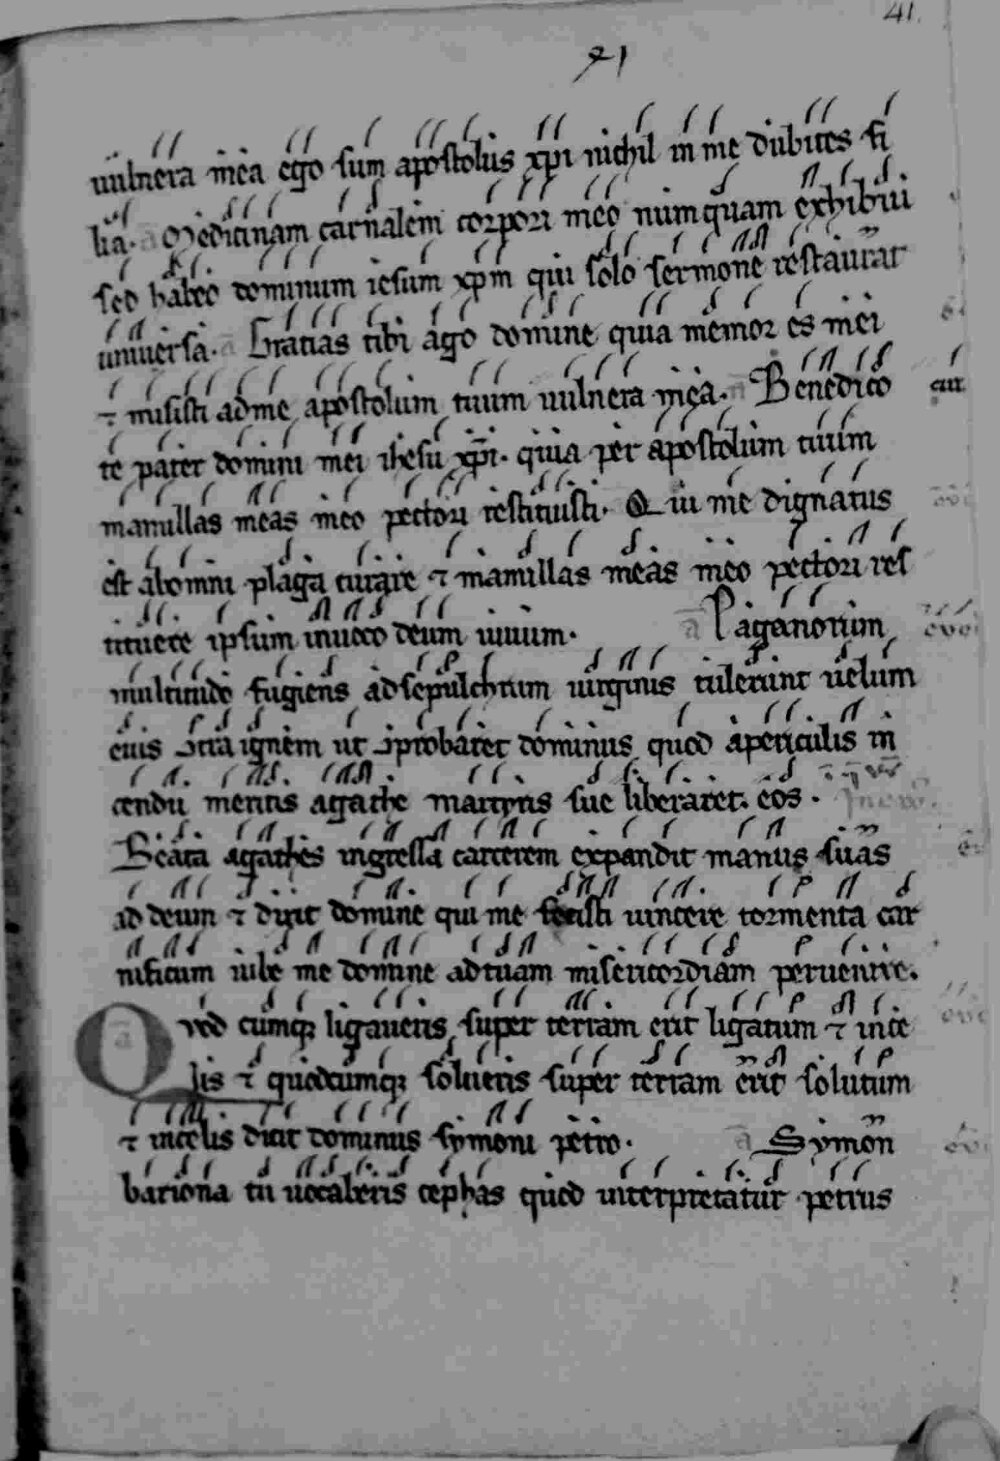 41.
41
uulnera mea ego sum apostolus xpi nichil in me dubites fi
lia. a Medicinam carnalem corpori meo numquam exhibui
sed habeo dominum iesum xpm qui solo sermone restaurat
uniuersa. a Gratias tibi ago domine quia memor es mei
⁊ misisti adme apostolum tuum uulnera mea. a Benedico
te pater domini mei ihesu xpi. quia per apostolum tuum
mamillas meas meo pectori restituisti. Qui me dignatus
est abomni plaga curare ⁊ mamillas meas meo pectori res
tituere ipsum inuoco deum uiuum. a Paganorum
multitudo fugiens adsepulchrum uirginis tulerunt uelum
eius ꝯtra ignem ut ꝯprobaret dominus quod apericulis in
cendii meritis agathe martyris sue liberaret. eos.
Beata agathes ingressa carcerem expandit manus suas
ad deum ⁊ dixit domine qui me fecisti uincere tormenta car
nificum iube me domine adtuam misericordiam peruenire.
Quod cumqꝫ ligaueris super terram erit ligatum ⁊ ince
lis ⁊ quodcumqꝫ solueris super terram erit solutum
⁊ incelis dicit dominus symoni petro. a Symon
bariona tu uocaberis cephas quod interpretatur petrus